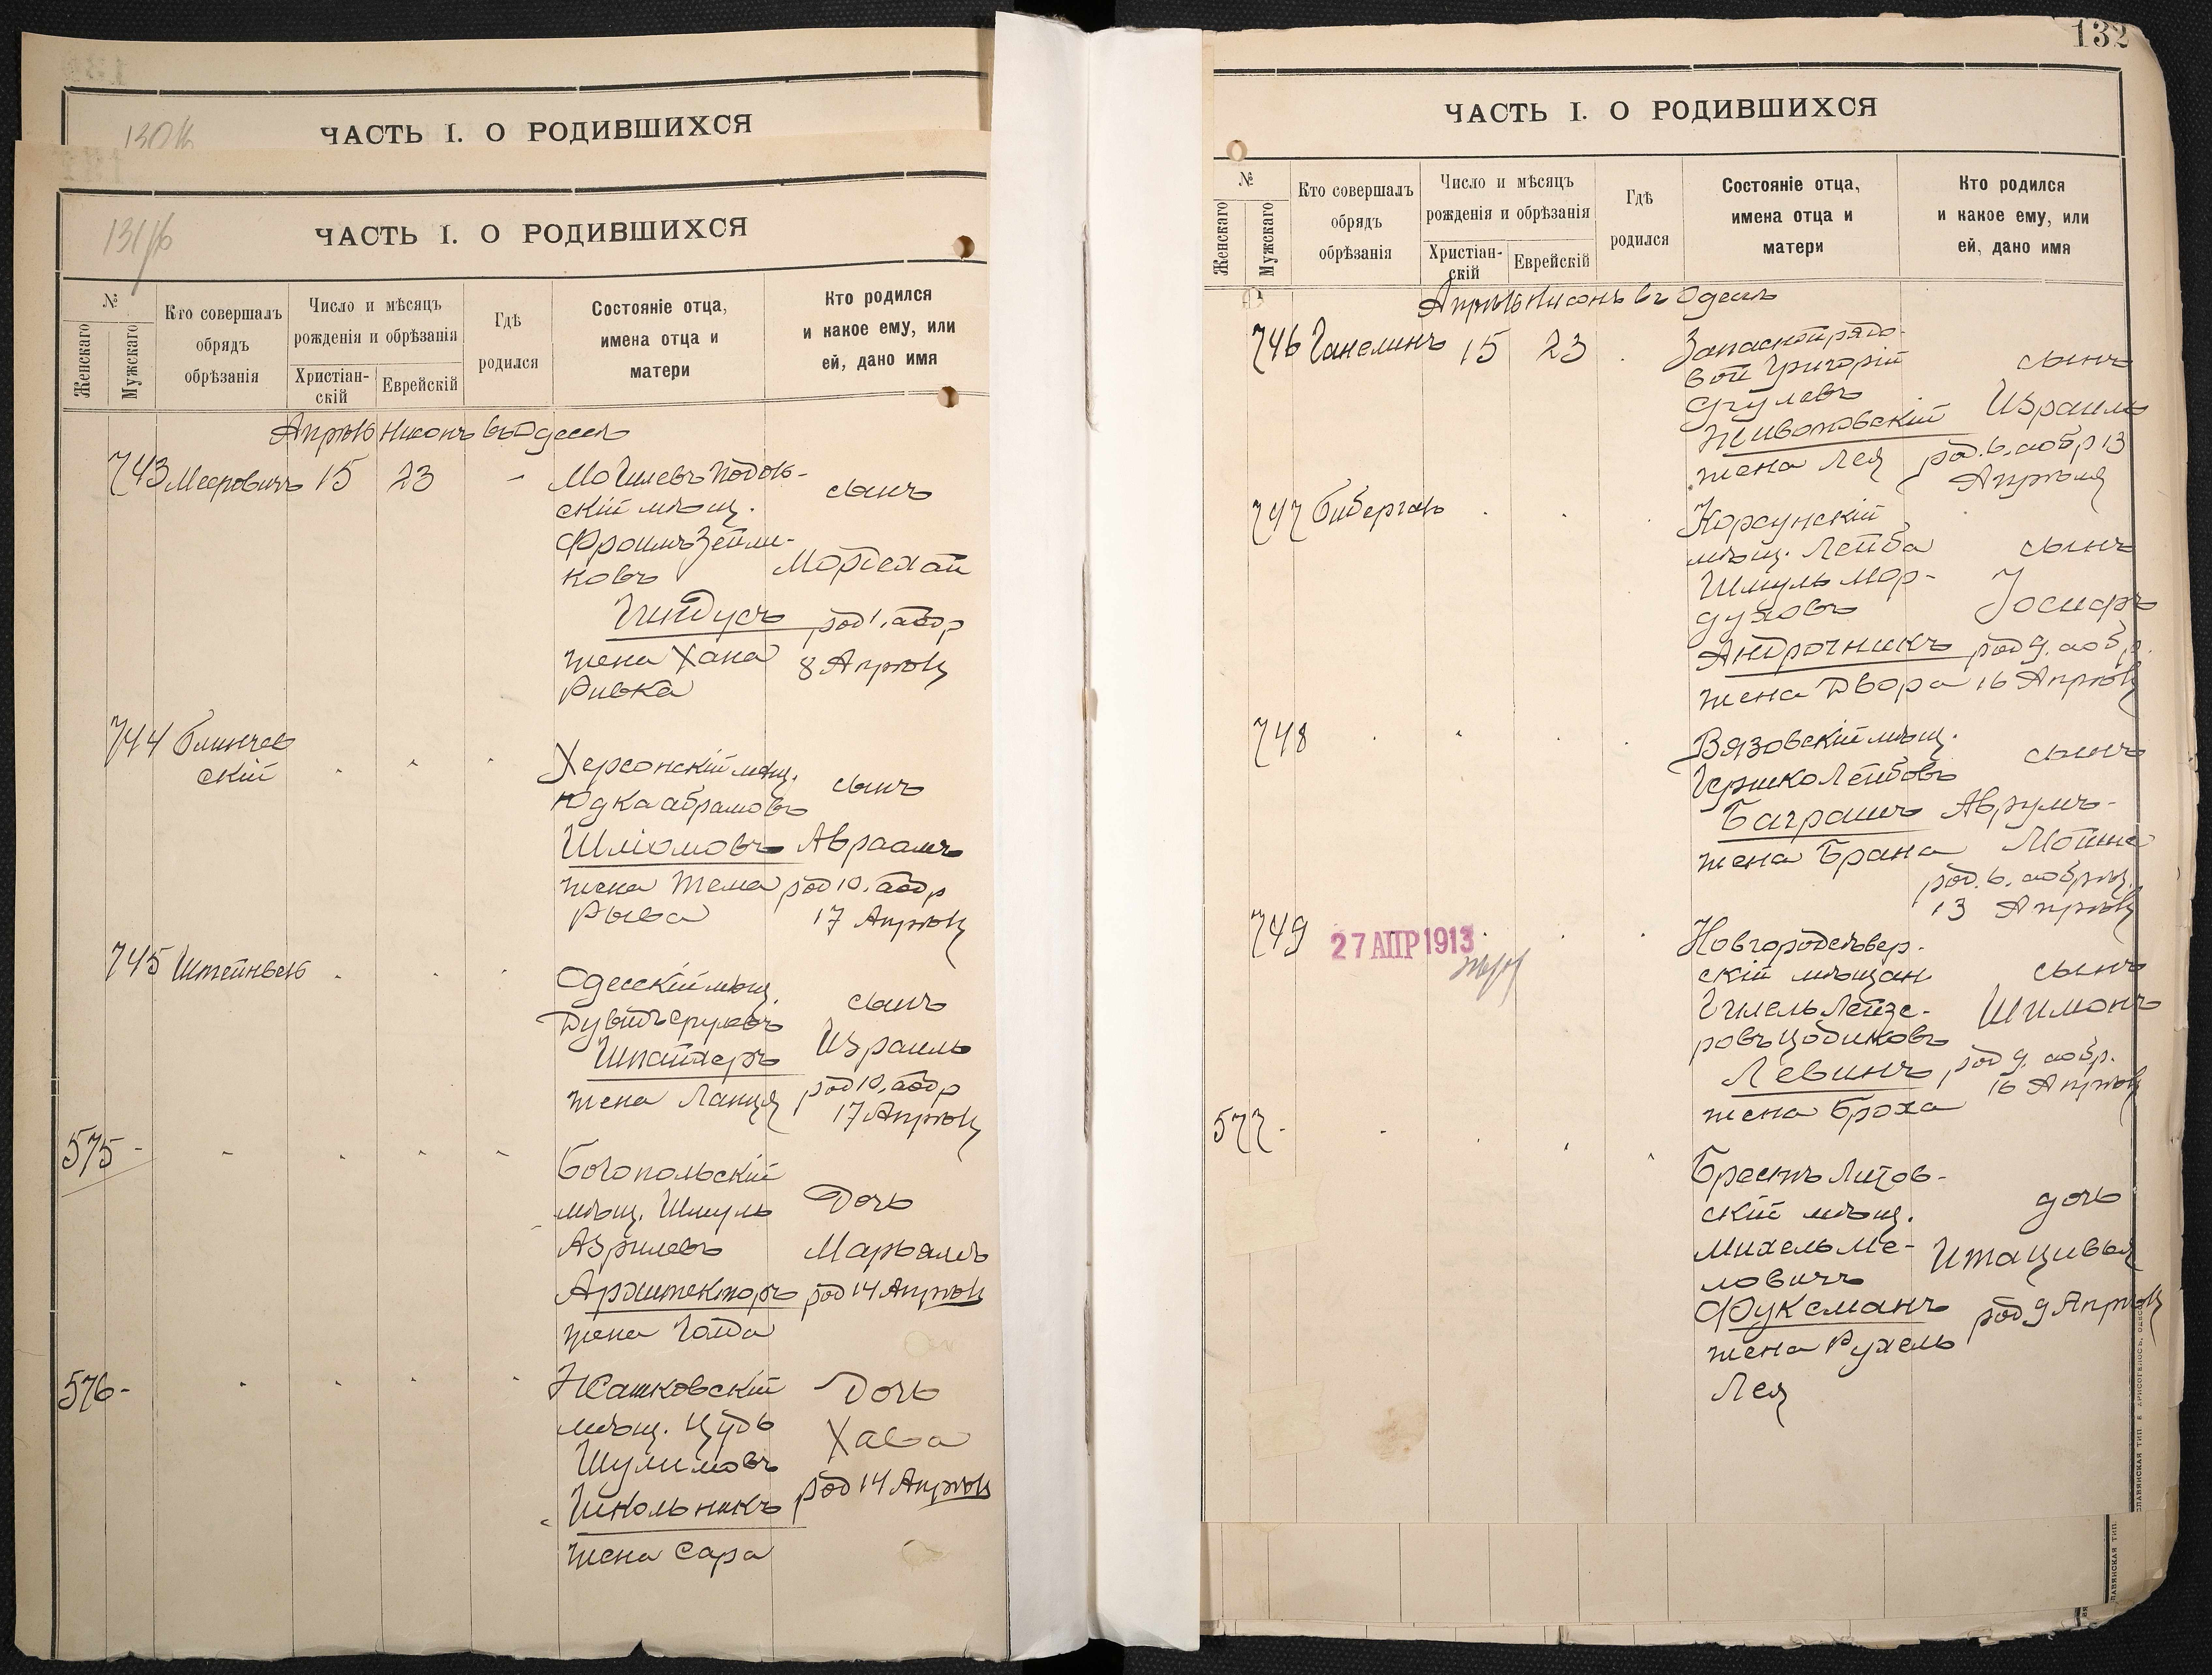 130 к
ЧАСТЬ I. О РОДИВШИХСЯ
131
ЧАСТЬ I. О РОДИВШИХСЯ
№
Женскаго
Мужскаго
Кто совершалъ
обрядъ
обрѣзанія
Число и мѣсяцъ
рожденія и обрѣзанія
Христіан-
скій
Еврейскій
Гдѣ
родился
Состояніе отца,
имена отца и
матери
Кто родился
и какое ему, или
ей, дано имя
Апрѣль Нисонъ въ Одессѣ
743 Меерович 15 23 - Могилевъ Подоль-
скій мѣщ.
Фроимъ Зейли-
ковъ
Гитдусъ
жена Хана
Ривка
сынъ
Мордехай
род 1. а обр
8 Апрѣля
744 Блинчев
скій
Херсонскій мѣщ.
Юдка Абрамовъ
Шліомовъ
жена Тема
Рыва
сынъ
Авраамъ
род 10. а обр
17 Апрѣля
745 Штейнъ
Одесскій мѣщ.
Дувидъ Сруловъ
Шпайхеръ
жена Ланця
сынъ
Израиль
род 10. а обр
17 Апрѣля
575 -
Богопольскій
мѣщ. Шмуль
Азрилевъ
Архитекторъ
жена Голда
Дочь
Марьямъ
род 14 Апрѣля
576 -
Жашковскій
мѣщ. Цудь
Шулимовъ
Школьникъ
жена Сара
Дочь
Хава
род 14 Апрѣля
132
ЧАСТЬ I. О РОДИВШИХСЯ
№
Женскаго
Мужскаго
Кто совершалъ
обрядъ
обрѣзанія
Число и мѣсяцъ
рожденія и обрѣзанія
Христіан-
скій
Еврейскій
Гдѣ
родился
Состояніе отца,
имена отца и
матери
Кто родился
и какое ему, или
ей, дано имя
Апрѣль Нисонъ въ Одессѣ
746 Ганелинъ 15 23 Запасной рядо-
вой Григорій
Сруlевъ
Животовскій
жена Лея
сынъ
Израиль
род. 6. а обр 13
Апрѣля
747 Бибергалъ
Корсунскій
мѣщ. Лейба
Шмуль Мор-
духовъ
Андрочникъ
жена Двора
сынъ
Іосифъ
род 9. а обр.
16 Апрѣля
748
Вязовскій мѣщ.
Гершко Лейбовъ
Баграшъ
жена Брана
сынъ
Аврумъ-
Мойше
род. 6. а обрѣз.
13 Апрѣля
749
27 АПР 1913
Новгородсѣвер-
скій мѣщан
Гилель Лейзе-
ровъ Цодиковъ
Левинъ
жена Броха
сынъ
Шимонъ
род 9. а обр.
16 Апрѣля
577 -
Брестъ Литов-
скій мѣщ.
Михель Ме-
ловичъ
Фуксманъ
жена Рухель
Лея
дочь
Ита Цивья
род 9 Апрѣля